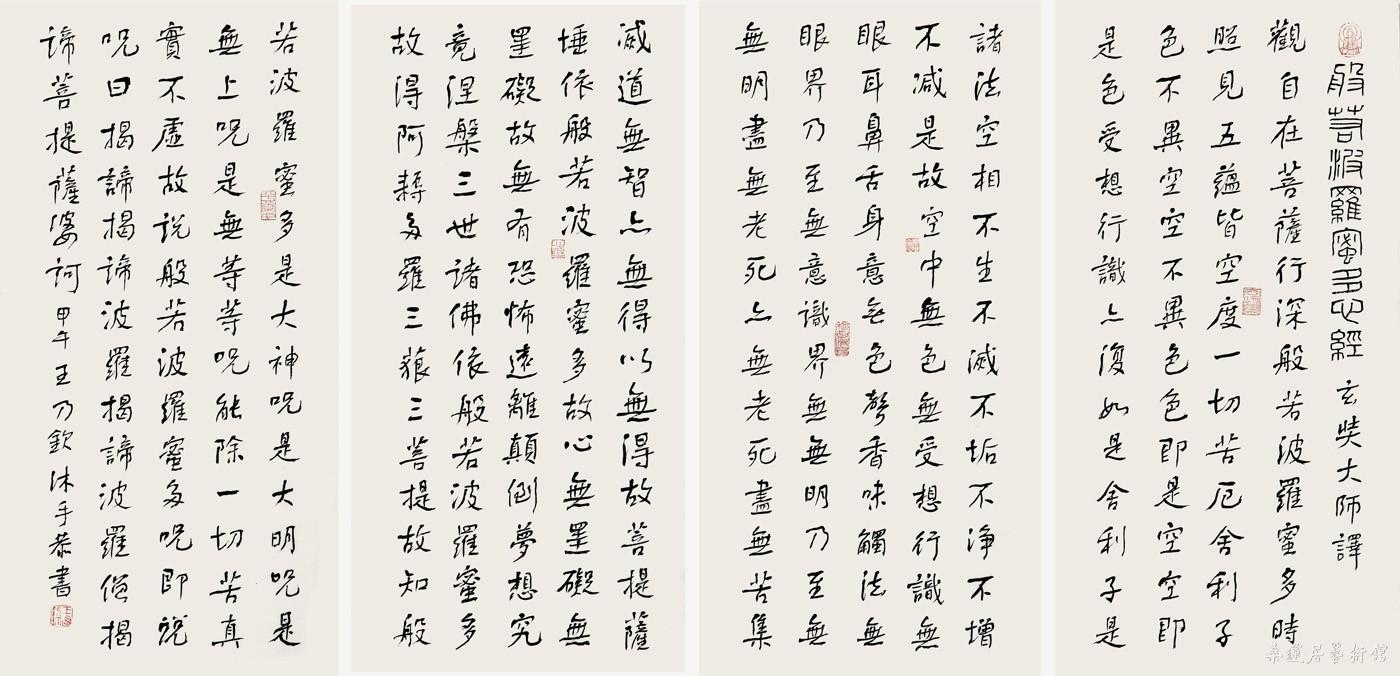 般若波羅蜜多心經 玄奘大師譯
觀自在菩薩行深般若波羅蜜多時
照見五蘊皆空度一切苦厄舍利子
色不異空空不異色色即是空空即
是色受想行識亦復如是舍利子是
諸法空相不生不滅不垢不淨不增
不減是故空中無色無受想行識無
眼耳鼻舌身意無色聲香味觸法無
眼界乃至無意識界無無明乃至無
無明盡無老死亦無老死盡無苦集
滅道無智亦無得以無得故菩提薩
埵依般若波羅蜜多故心無罣礙無
罣礙故無有恐怖遠離顛倒夢想究
竟涅槃三世諸佛依般若波羅蜜多
故得阿耨多羅三藐三菩提故知般
若波羅蜜多是大神呪是大明呪是
無上呪是無等等呪能除一切苦真
實不虛故說般若波羅蜜多呪即說
呪曰揭諦揭諦波羅揭諦波羅僧揭
諦菩提薩婆訶 甲午王乃欽沐手恭書
桑蓮居藝術館